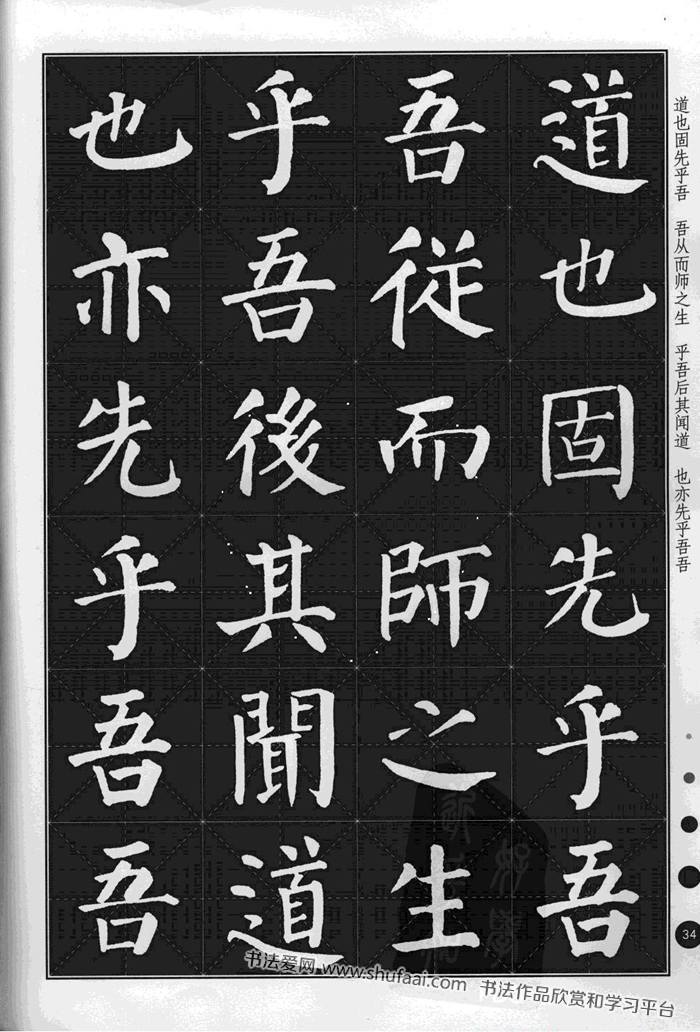 道也固先乎吾
吾從而師之生
乎吾後其聞道
也亦先乎吾吾
道也固先乎吾 吾从而师之生 乎吾后其闻道 也亦先乎吾吾
34
书法爱网 www.shufaai.com 书法作品欣赏和学习平台